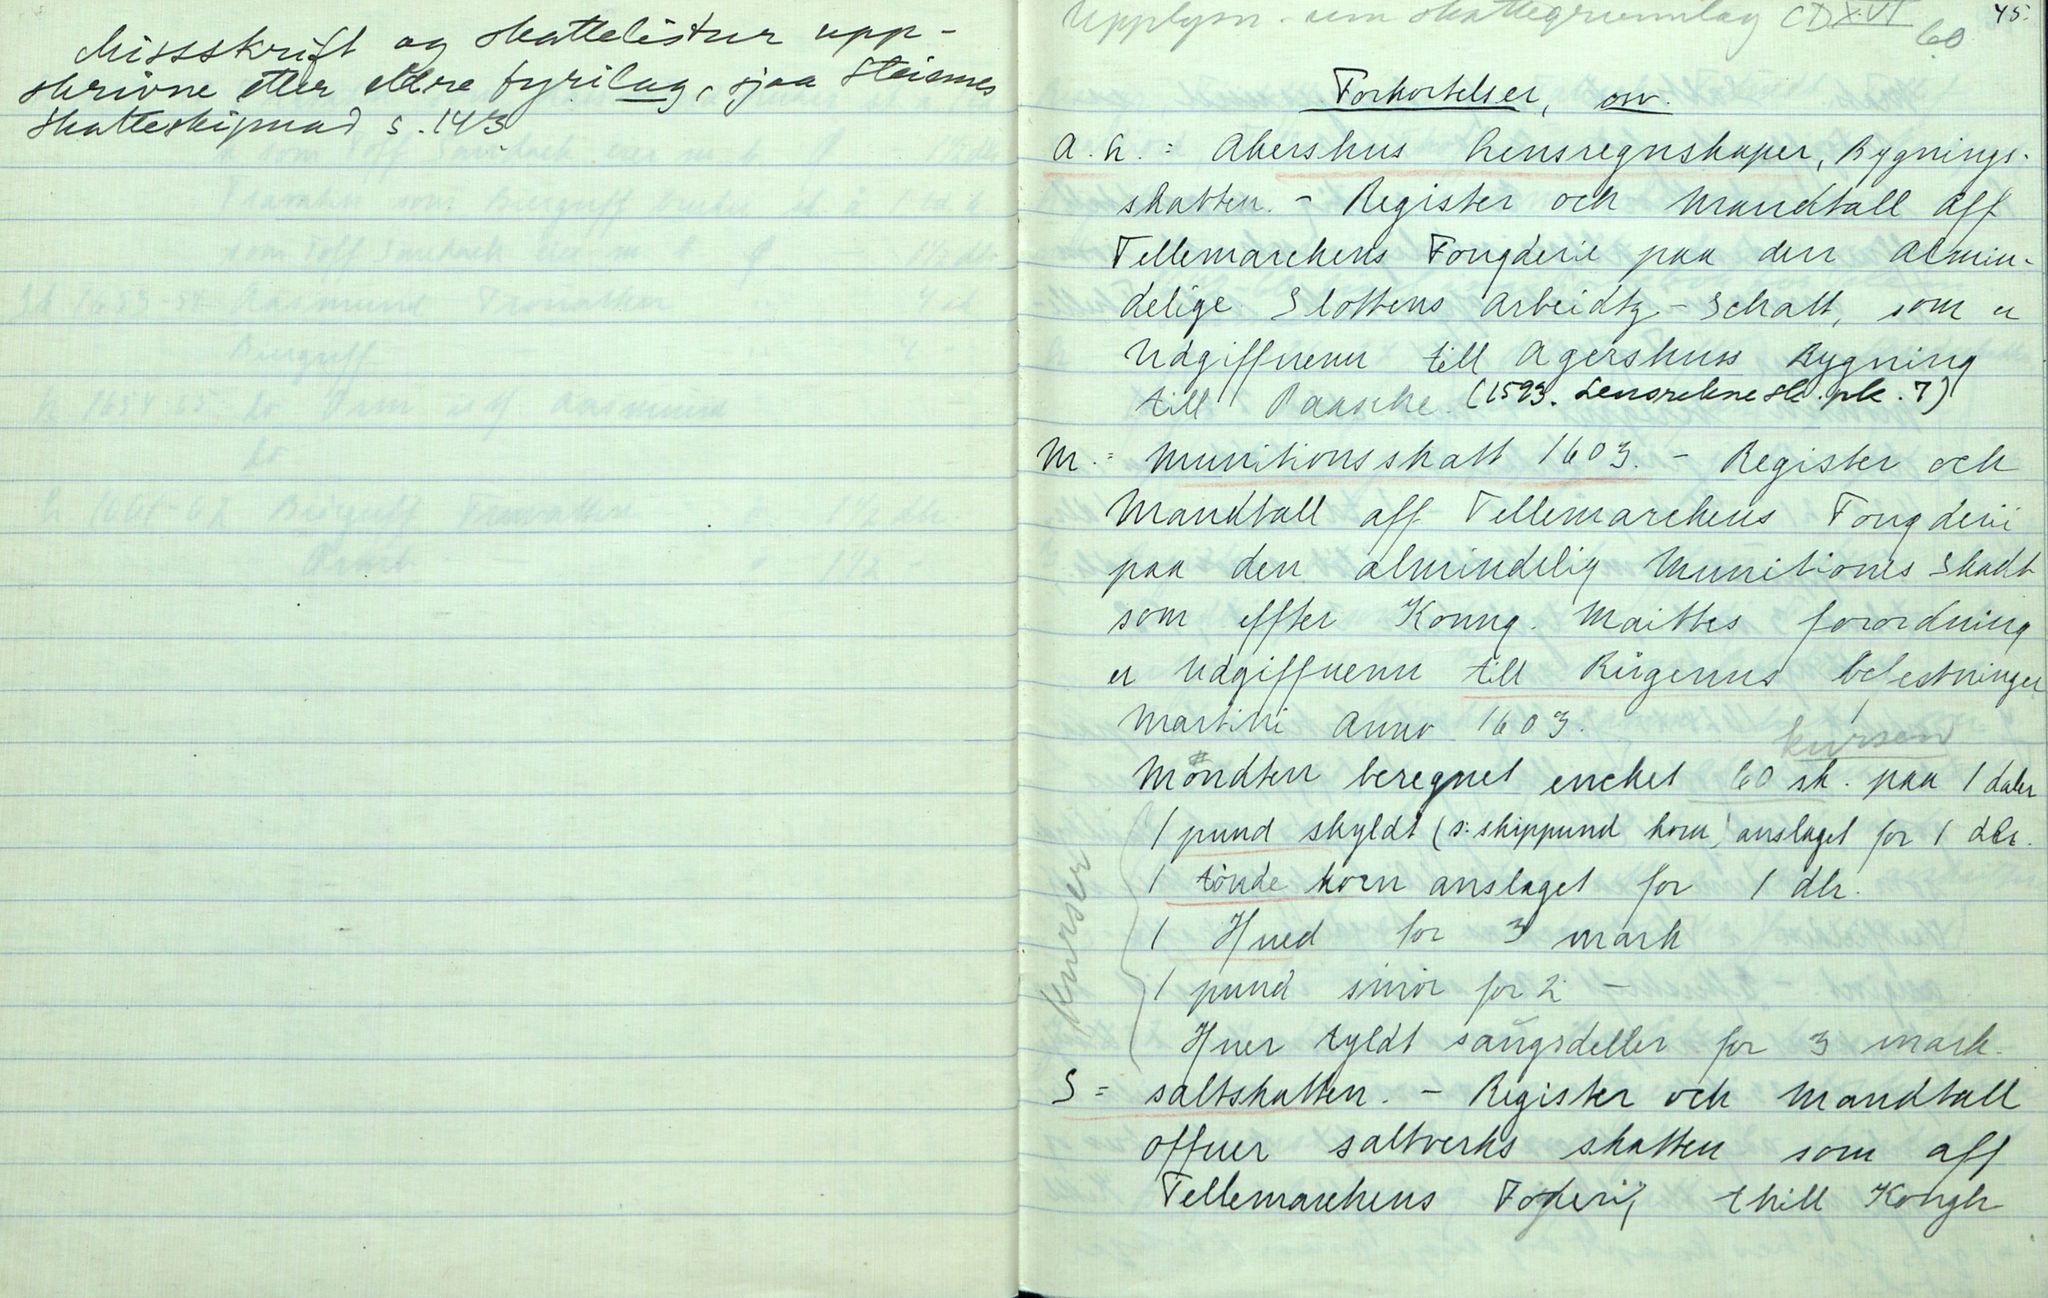 Missskrift og skattelistur upp-
skrivne etter eldre fyrilag, sjaa Steinnes
Skatteskipnad s. 143
Upplysn. um skattegrunnlag CD XVI 60
45.
Forkortelser, osv.
A. L. = Akershus Lensregnskaper, Bygnings-
skatten. - Register och Mandtall aff
Tellemarckens Fougderie paa den Almin-
delige Slottens Arbeidtz-Schatt, som er
Udgiffuenn till Agershuss Bygning
till Paaske. (1593. Lensreknesk. pk. 7)
M. = Munitionsskatt 1603. - Register och
Mandtall aff Tellemarckens Fougderii
paa den almindelig Munitions Skadt
som effter Konng. Maittes forordning
er Udgiffuenn till Rigenns befestninger
Martini Anno 1603.
kursen
Møndten beregnet enckel 60 sk. paa 1 daler
Kurser
1 pund skyldt (s: skippund korn) anslaget for 1 dlr.
1 tønde korn anslaget for 1 dlr.
1 Hued for 3 mark
1 pund smør for 2 -
Huer tyldt saugsdeller for 3 mark.
S = saltskatten. - Register och Mandtall
offuer saltverks skatten som aff
Tellemarckens Foderi, thill Kongh